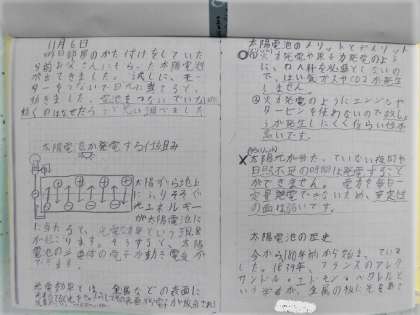 11月6日
昨日部屋のかたづけをしていた
ら前お父さんにもらった太陽電池
が出てきました。試しに、モー
ターをつないで日光に当てると、
動きました。電池をつないでいないのに
動くのはなぜだろうと思い調べました。
太陽電池が発電する仕組み
太陽から地上
にふりそそぐ
光エネルギー
が太陽電池に
当たると、光電効果という現象
が起こります。そうすると、太陽
電池の半導体の電子が動き電気が
できます。
光電効果とは、金属などの表面に
太陽電池のメリットとデメリット
火力発電や原子力発電のよう
に、燃料を必要としないの
で、はい気ガスやCO2が発生
しません。
火力発電のようにエンジンや
タービンを使わないので故しょ
うが発生しにくく
高いです。
太陽光が当たっていない夜間や
日照不足の時間は発電すること
ができません。
定量発電できないため、安定性
の面は弱いです。
太陽電池の歴史
今から180年前から始まっていま
した。1839年、フランスのアレク
サンドル・エドモン・ベクレルと
いう学者が、金属の板に光をあて